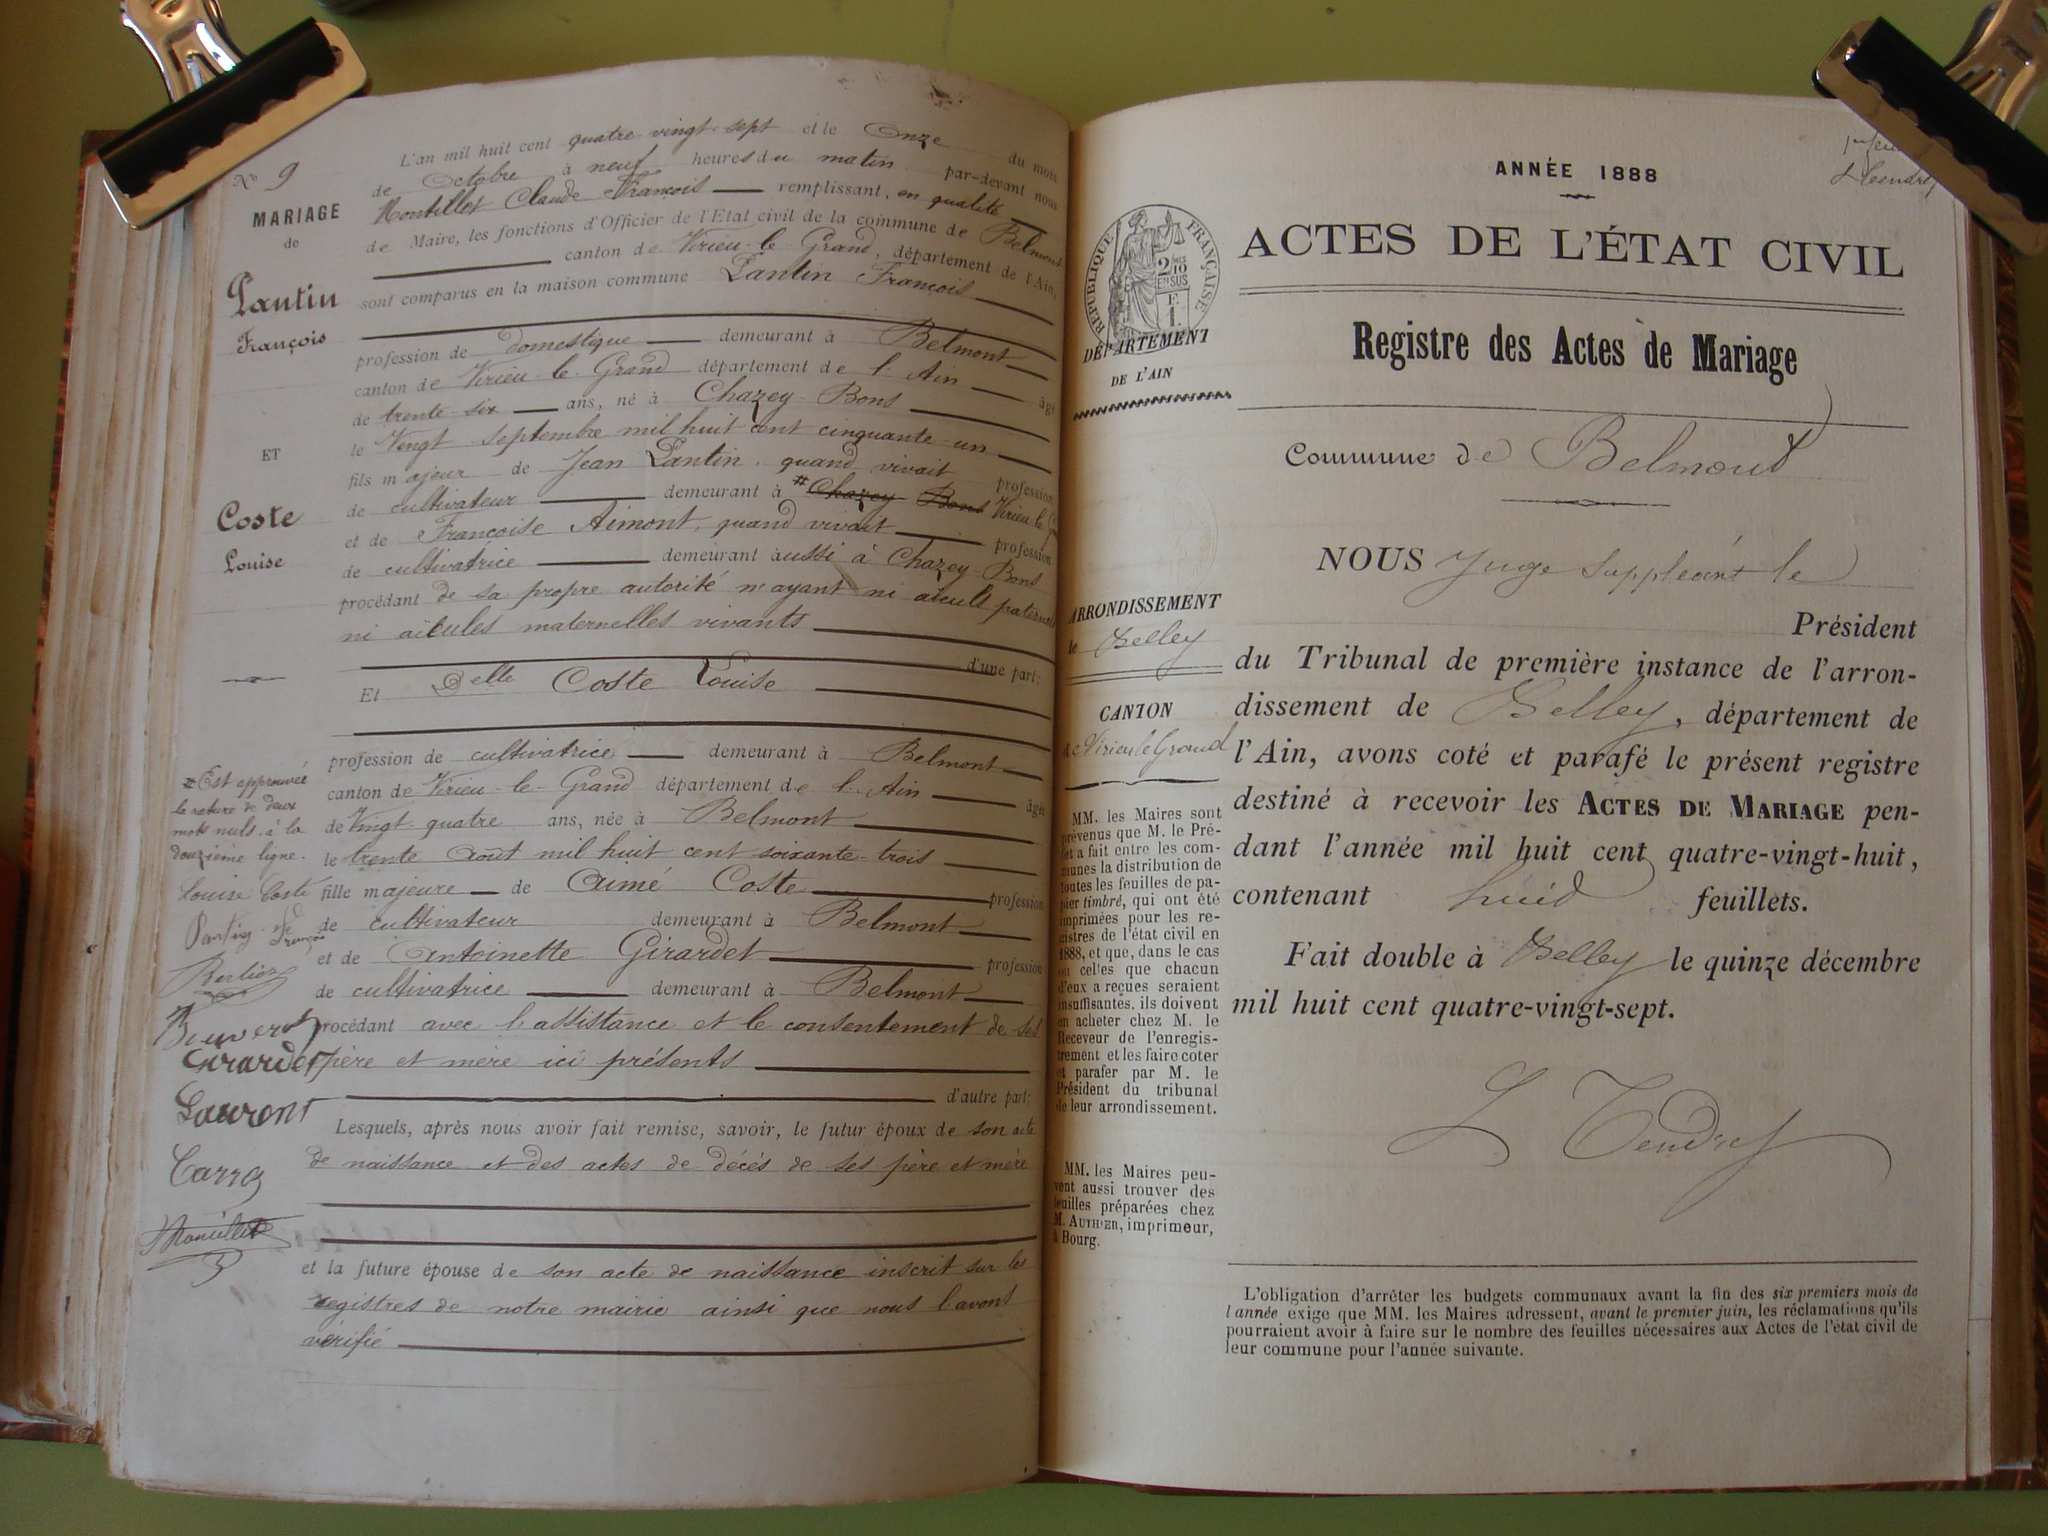 No 9
MARIAGE
de
Pantin
François
ET
Coste
Louise
L'an mil huit cent quatre vingt-sept et le Onze du mois
de Octobre à neuf heures du matin par-devant nous
Montillet Claude François remplissant, en qualité
de Maire, les fonctions d'Officier de l'Etat civil de la commune de Belmont
canton de Virieu-le-Grand, département de l'Ain,
sont comparus en la maison commune Pantin François
profession de domestique demeurant à Belmont
canton de Virieu-le-Grand département de l'Ain âgé
de trente-six ans, né à Chazey-Bons
le Vingt septembre mil huit cent cinquante-un
fils majeur de Jean Pantin, quand vivait profession
de cultivateur demeurant à # Chazey-Bons Virieu le
et de Françoise Aimont, quand vivait profession
de cultivatrice demeurant aussi à Chazey-Bons
procédant de sa propre autorité n'ayant ni aïeuls paternels
ni aïeules maternelles vivants
d'une part:
Et Delle Coste Louise
profession de cultivatrice demeurant à Belmont
canton de Virieu-le-Grand département de l'Ain âgée
de Vingt-quatre ans, née à Belmont
le trente Août mil huit cent soixante-trois
fille majeure de Aimé Coste profession
de cultivateur demeurant à Belmont
et de Antoinette Girardet profession
de cultivatrice demeurant à Belmont
procédant avec l'assistance et le consentement de ses
père et mère ici présents
d'autre part:
Lesquels, après nous avoir fait remise, savoir, le futur époux de son acte
de naissance et des actes de décès de ses père et mère
et la future épouse de son acte de naissance inscrit sur les
registres de notre mairie ainsi que nous l'avons
vérifié
# Est approuvée
la rature de deux
mots nuls à la
douzième ligne.
Louise Coste
Pantin
François
Berlioz
Bouvert
Girardet
Laurent
Carra
Montillet
ANNÉE 1888
ACTES DE L'ÉTAT CIVIL
Registre des Actes de Mariage
Commune de Belmont
NOUS Juge suppléant le
Président
du Tribunal de première instance de l'arron-
dissement de Belley, département de
l'Ain, avons coté et parafé le présent registre
destiné à recevoir les ACTES DE MARIAGE pen-
dant l'année mil huit cent quatre-vingt-huit,
contenant huit feuillets.
Fait double à Belley le quinze décembre
mil huit cent quatre-vingt-sept.
L Tendret
L'obligation d'arrêter les budgets communaux avant la fin des six premiers mois de
l'année exige que MM. les Maires adressent, avant le premier juin, les réclamations qu'ils
pourraient avoir à faire sur le nombre des feuilles nécessaires aux Actes de l'état civil de
leur commune pour l'année suivante.
RÉPUBLIQUE FRANÇAISE
2 10 EN SUS
F. 1.
DÉPARTEMENT
DE L'AIN
ARRONDISSEMENT
de Belley
CANTON
de Virieu le Grand
MM. les Maires sont
prévenus que M. le Pré-
fet a fait entre les com-
munes la distribution de
toutes les feuilles de pa-
pier timbré, qui ont été
imprimées pour les re-
gistres de l'état civil en
1888, et que, dans le cas
où celles que chacun
d'eux a reçues seraient
insuffisantes, ils doivent
en acheter chez M. le
Receveur de l'enregis-
trement et les faire coter
et parafer par M. le
Président du tribunal
de leur arrondissement.
MM. les Maires peu-
vent aussi trouver des
feuilles préparées chez
M. AUTHIER, imprimeur,
à Bourg.